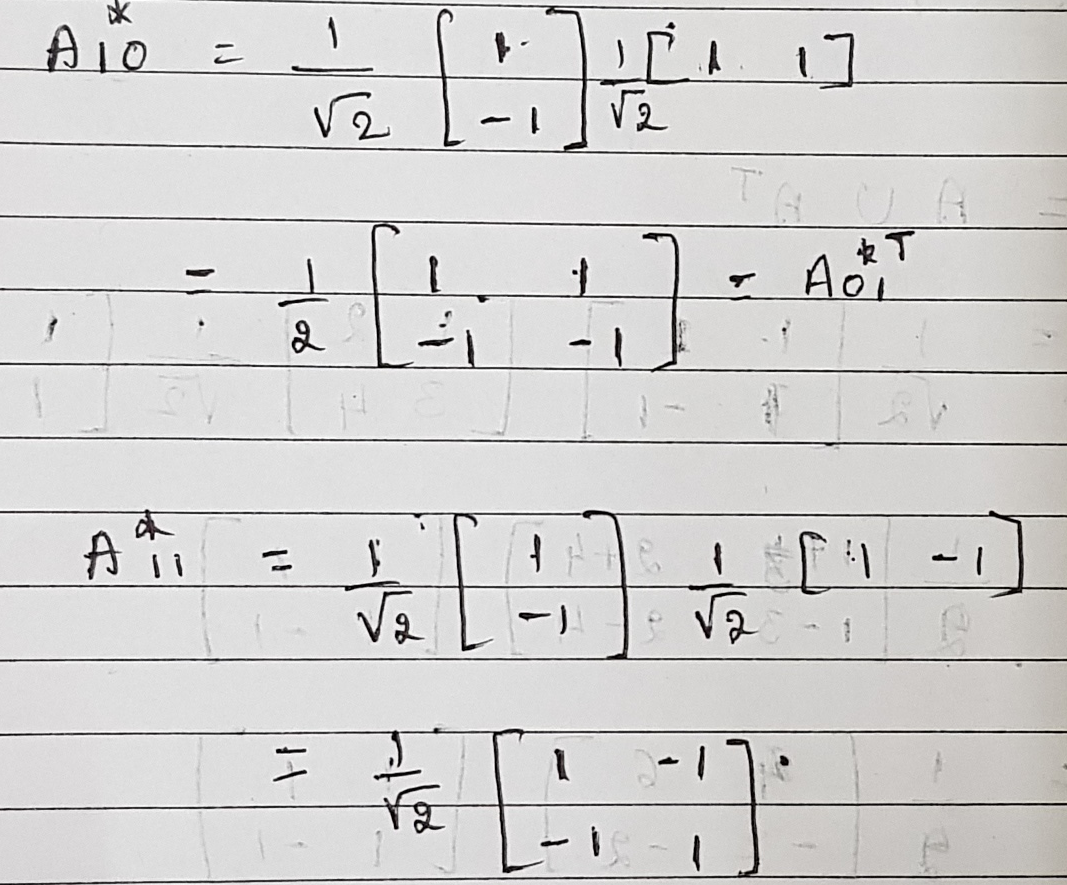 A₁₀* = 1/√2 [1 ; -1] 1/√2 [1 1]
= 1/2 [1 1 ; -1 -1] = A₀₁*ᵀ
A*₁₁ = 1/√2 [1 ; -1] 1/√2 [1 -1]
= 1/√2 [1 -1 ; -1 -1]